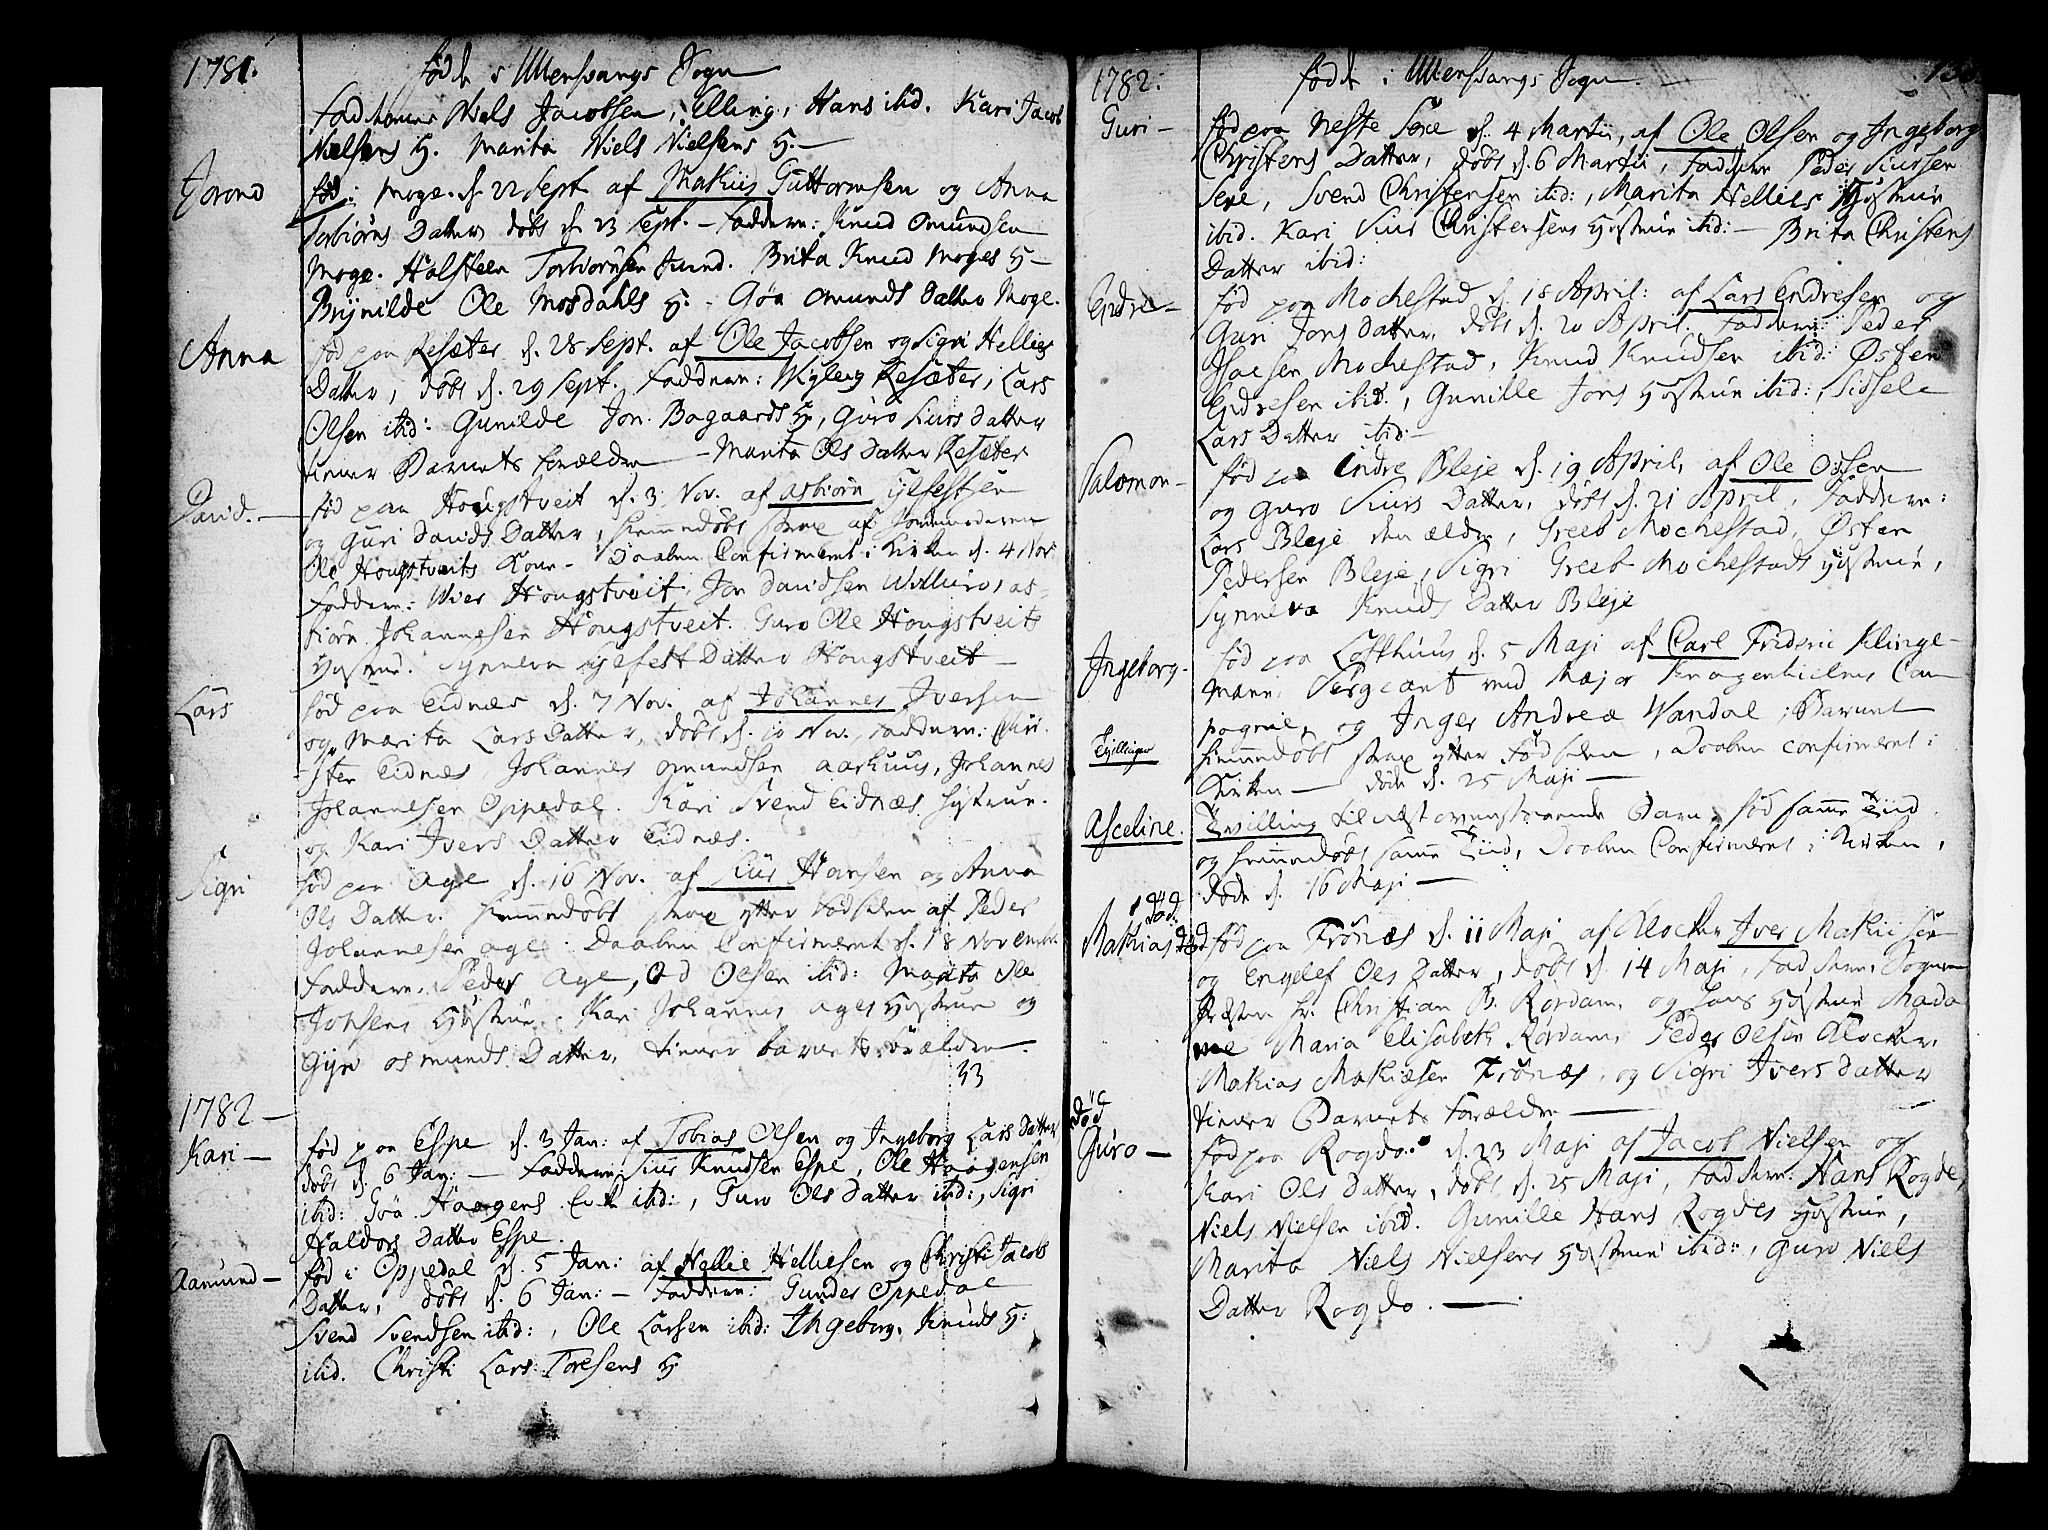 1781.
fødde i Ullensvangs Sogn
Fadderne Niels Jacobsen, Elling, Hans ibid. Kari Jacob
Nielsens H. Marita Niels Nielsens H.—
Jorond
fød i Moge d. 22 Sept. af Mathiis Guttormsen og Anna
Torbiørns Datter, døbt d. 23 Sept. — Faddere: Knud Omundsen
Moge. Halsteen Torbiørnsen Juund. Brita Knud Moges H—
Brynilde Ole Mosdahls H: - Gøa Omunds Datter Moge.
Anna
fød paa Resæter d. 28 Sept. af Ole Jacobsen og Sigri Hellies
Datter, døbt d. 29 Sept. Faddere: Resæter, Lars
Olsen ibid: Gunilde Jon Bagaards H, Guro Siurs Datter
tiener Barnets Forældre — Marita Ols Datter Resæter
David.—
fød paa Hougstveit d. 3 Nov. af Asbiørn Sylfestsen
og Guri Davids Datter, hiemmedøbt strax af Jordmoderen
Ole Hougstveits Kone - Daaben Confirmeret i Kirken d. 4 Nov.
Faddere: Wier Hougstveit, Jon Davidsen, As-
biørn Johannesen Hougstveit. Guro Ole Hougstveits
Hustrue. Synneva Sylfest Datter Hougstveit —
Lars
fød paa Eidnæs d. 7 Nov. af Johannes Iversen
og Marita Lars Datter, døbt d. 10 Nov., Faddere: Chri-
ster Eidnæs, Johannes Omundsen Aarhuus, Johannes
Johannesen Oppedal. Kari Svend Eidnæs Hustrue.
og Kari Ivers Datter Eidnæs.
Sigri
fød paa Age d. 16 Nov. af Siur Hansen og Anna
Ols Datter. hiemmedøbt strax efter Fødselen af Peder
Johannesen Age: Daaben Confirmeret d. 18 Novembr
Faddere. Peder Age, Od Olsen ibid: Marita Ole
Johsens Hustrue. Kari Johannes Ages Hustrue og
Gyri Osmunds Datter, tiener barnets Forældre.
33
1782 —
Kari —
fød paa Espe d. 3 Jan: af Tobias Olsen og Ingeborg Lars Datter
døbt d. 6 Jan: — Faddere: Siur Knudsen Espe, Ole Haagensen
ibid: Gøa Haagens ibid:, Guro Ols Datter ibid:, Sigri
Haldors Datter Espe.
Aamund —
fød i Oppedal d. 5 Jan: af Hellie Helliesen og Christi Jacobs
Datter, døbt d. 6 Jan: — Faddere: Gunder Oppedal
Svend Svendsen ibid:, Ole Larsen ibid: Ingeborg Knuds H:
ibid. Christi Lars Toresens H
1782:
fødde i Ullensvangs Sogn —
Guri —
fød paa Neste Sexe d. 4 Martii, af Ole Olsen og Ingeborg
Christens Datter, døbt d. 6 Martii, Faddere Peder Siursen
Sexe, Svend Christensen ibid:, Marita Hellies Hustrue
ibid. Kari Siur Christensens Hustrue ibid: — Brita Christens
Datter ibid:
Endre —
fød paa Mochestad d. 18 April: af Lars Endresen og
Guri Jons Datter, døbt d. 20 April. Faddere: Peder
Isacsen Mochestad, Knud Knudsen ibid: Østen
Endresen ibid., Gunille Jons Hustrue ibid:, Sissele
Lars Datter ibid:
Salomon —
fød paa Indre Bleje d. 19 April, af Ole Olsen
og Guro Siurs Datter, døbt d. 21 April, Faddere:
Lars Bleje den ældre, Greeb Mochestad, Østen
Pedersen Bleje, Sigri Greeb Mochestads Hustrue,
Synneva Knuds Datter Bleje
Ingeborg-
fød paa Lofthuus d. 5 Maji af Carl Frideric Klinge-
mann, Sergeant ved Major Knagenhielms Com
pagnie, og Inger Andrea Wandal; Barnet
Tvillinger
hiemmedøbt strax efter Fødselen, Daaben confirmeret i
Kirken — døde d. 25 Maji —
Asceline.
Tvilling til næst ovenstaaende Barn, fød samme Tiid
og hiemmedøbt samme Tiid, Daaben Confirmeret i Kirken,
døde d. 16 Maji —
død.
Mathias
fød paa Trønæs d. 11 Maji af Klocker Iver Mathisen
og Engelef Ols Datter, døbt d. 14 Maji, Faddere, Sogne-
Præsten Hr. Christian B. Rørdam, og hans Hustrue Mada
me Maria Elisabeth Rørdam, Peder Olsen Klocker,
Mathias Mathiæsen Trønæs, og Sigri Ivers Datter
tiener Barnets Forældre —
død
Guro —
fød paa Rogde d. 23 Maji af Jacob Nielsen og
Kari Ols Datter, døbt d. 25 Maji, Faddere. Hans Rogde,
Niels Nielsen ibid. Gunille Hans Rogdes Hustrue,
Marita Niels Nielsens Hustrue ibid:, Guro Niels
Datter Rogde. —